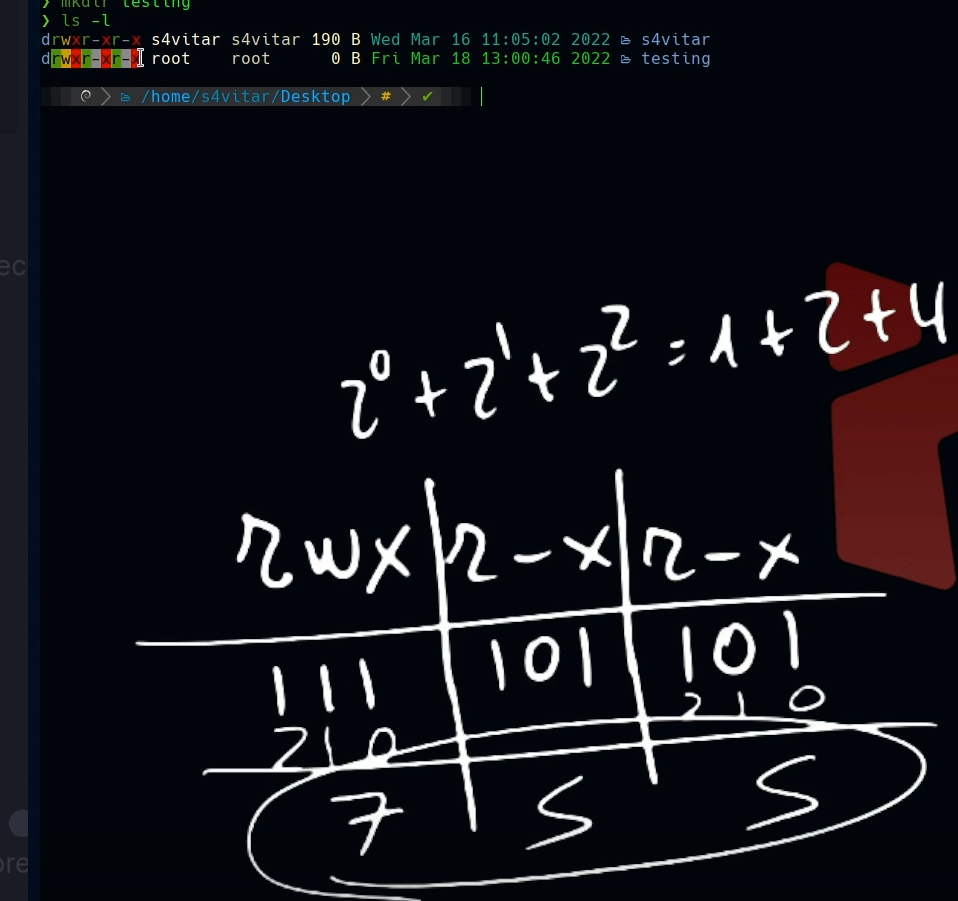 ❯ mkdir testing
❯ ls -l
drwxr-xr-x s4vitar s4vitar 190 B Wed Mar 16 11:05:02 2022 s4vitar
drwxr-xr-x root root 0 B Fri Mar 18 13:00:46 2022 testing
/home/s4vitar/Desktop # ✔
ec
2⁰ + 2¹ + 2² = 1 + 2 + 4
rwx r-x r-x
111 101 101
210 210
7 5 5
ore